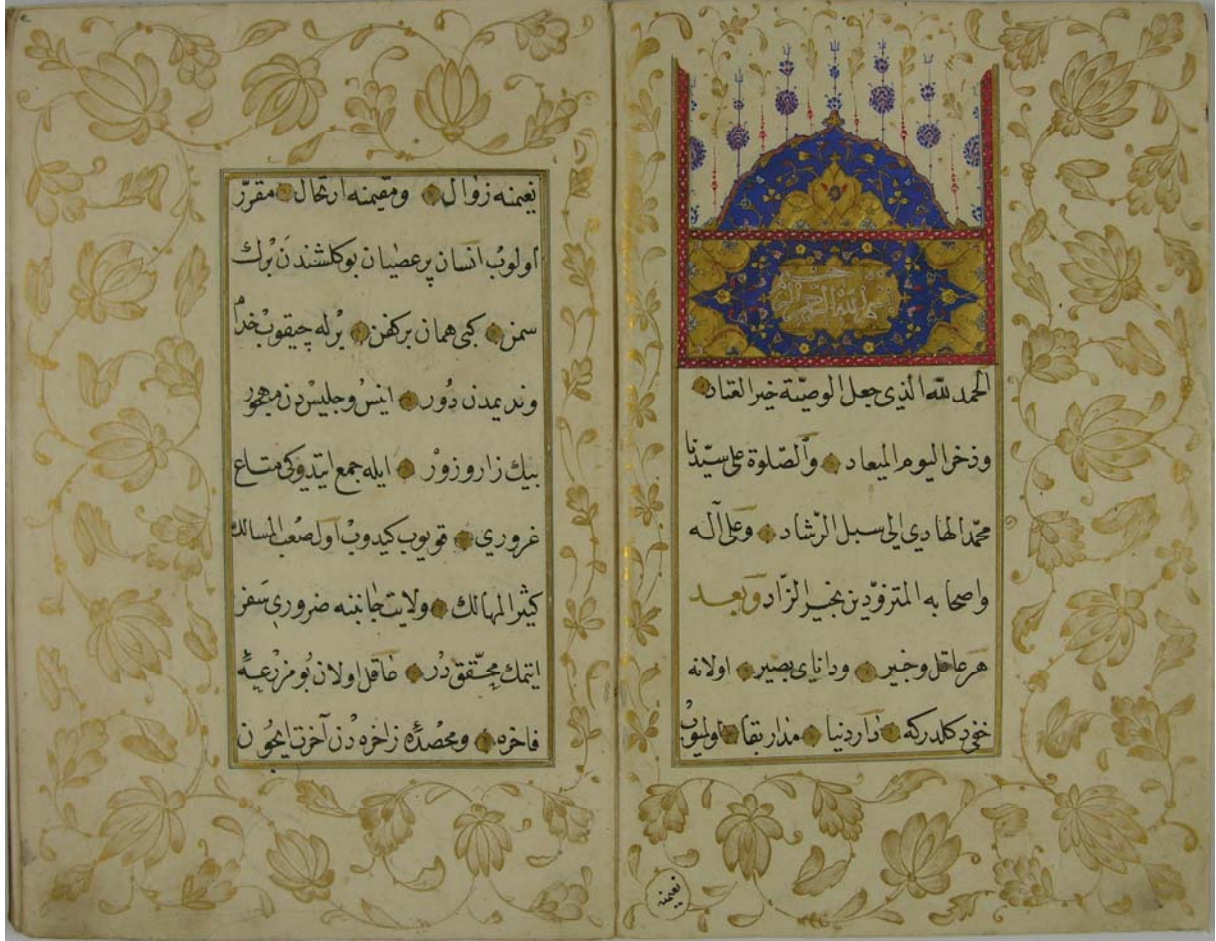 بسم الله الرحمن الرحيم
الحمد لله الذي جعل الوصيّة خير العتاد
وذخرا ليوم الميعاد والصّلوة على سيّدنا
محمّد الهادي الى سبل الرّشاد وعلى آله
واصحابه المتزوّدين بخير الزّاد وبعد
هر عاقل وخبير ودانای بصیر اولانه
خفی دكلدر كه دار دنیا مدار بقا اولمیوب
نعیمنه
نعیمنه زوال ومقیمنه ارتحال مقرّر
اولوب انسان پر عصیان بو كلشندن برك
سمن كبی همان بر كفن برله چیقوب خدام
وندیمدن دور انیس وجلیسدن مهجور
بیك زار وزور ایله جمع ایتدوكی متاع
غروری قویوب كیدوب اول صعب المسالك
كثیر المهالك ولایت جانبنه ضروری سفر
ایتمك محقّق در عاقل اولان بو مزرعهٔ
فاخره ومحصدهٔ زاخره دن آخرت ایچون